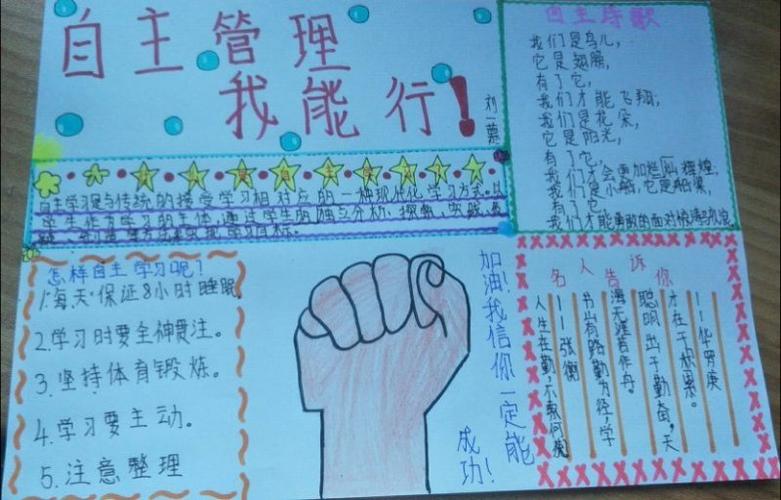 自主管理
我能行！
刘一蕙
自主学习是与传统的接受学习相对应的一种现代化学习方式。以
学生作为学习的主体，通过学生的独立分析、探索、实践、
怎样自主学习呢？
1.每天保证8小时睡眠
2.学习时要全神贯注。
3.坚持体育锻炼。
4.学习要主动。
5.注意整理
加油！我信你一定能
成功！
自主诗歌
我们是鸟儿，
它是翅膀，
有了它，
我们才能飞翔；
我们是花朵，
它是阳光，
有了它，
我们才会更加辉煌；
我们是小船，它是船桨，
有了它
我们才能勇敢的面对
名人告诉你
——华罗庚
才在于积累。
聪明出于勤奋，天
海无涯苦作舟。
书山有路勤为径，学
——张衡
人生在勤，不索何获